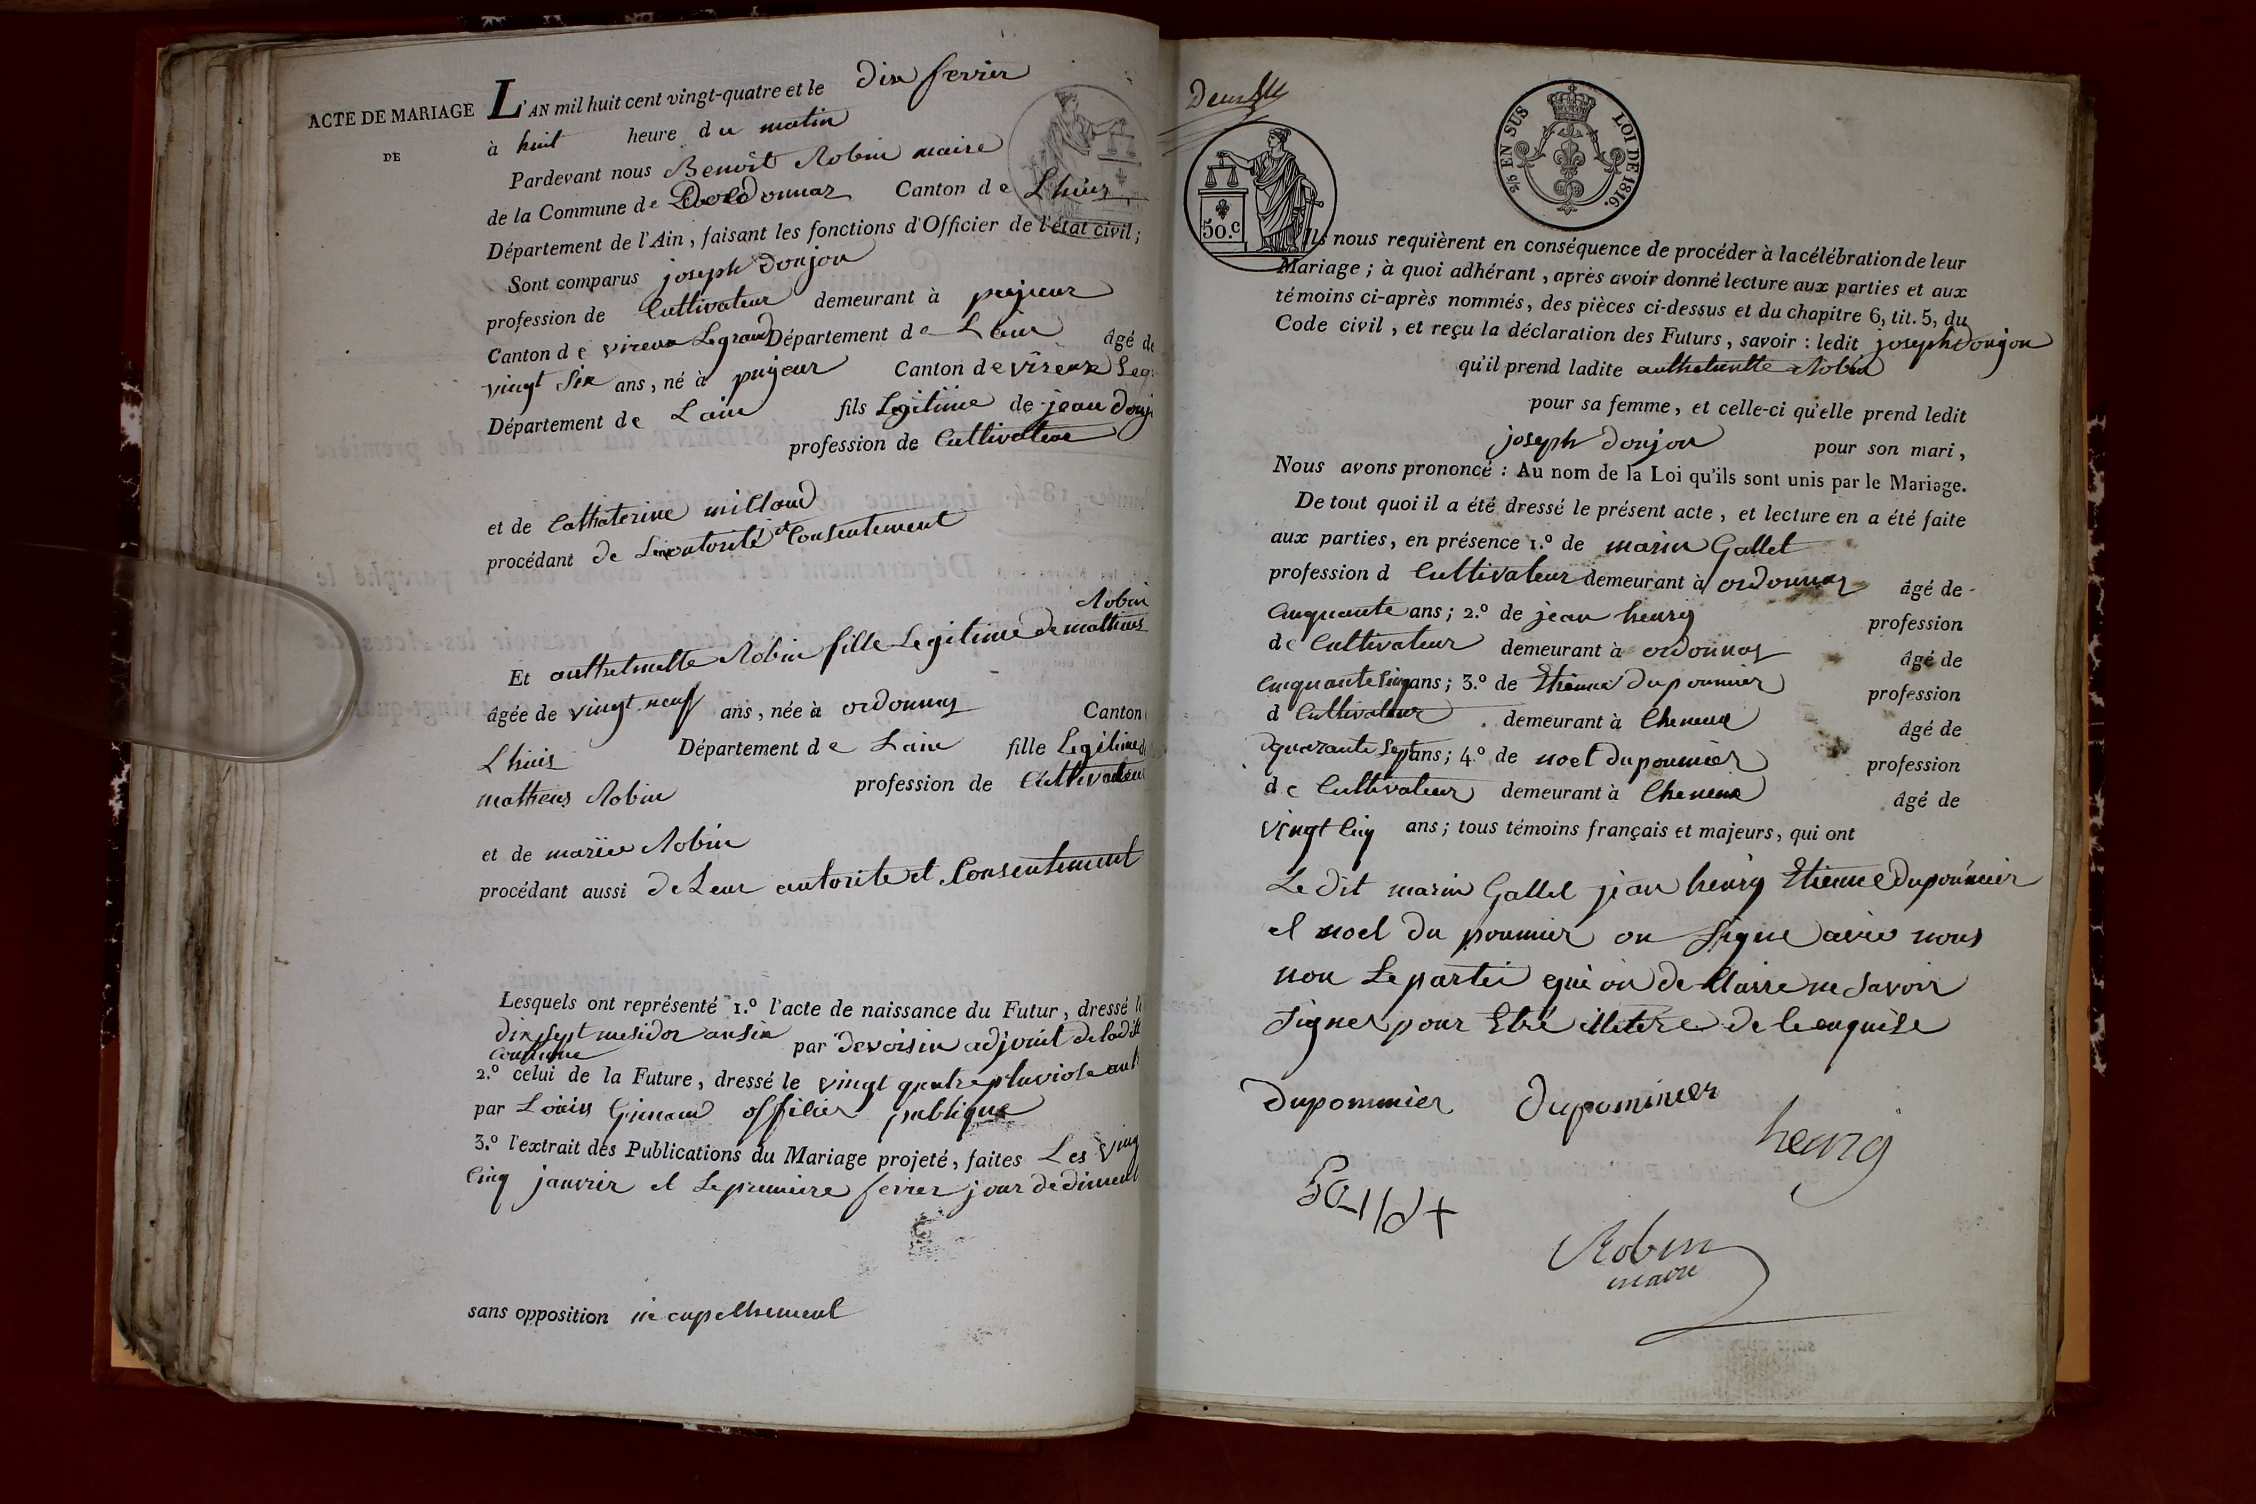 ACTE DE MARIAGE
DE
L'AN mil huit cent vingt-quatre et le dix fevrier
à huit heure du matin
Pardevant nous Benoit Robin maire
de la Commune de Dordonnas Canton de Lhuis
Département de l'Ain, faisant les fonctions d'Officier de l'état civil;
Sont comparus joseph Donjon
profession de Cultivateur demeurant à pujeur
Canton de vireux Legrand Département de Lain âgé de
vingt six ans, né à pujeur Canton de vireux Leg
Département de Lain fils Legitime de jean Donj
profession de Cultivateur
et de Cathaterine millaud
procédant de Leur autorité et Consentement
Robin
Et anthelmette Robin fille Legitime de mathieus
âgée de vingt neuf ans, née à ordonnas Canton
Lhuis Département de Lain fille Legitime de
matheus Robin profession de Cultivateur
et de marie Robin
procédant aussi de Leur autorite et Consentement
Lesquels ont représenté 1.º l'acte de naissance du Futur, dressé le
dix sept mesidor an six par devoisin adjoint de ladite
Commune
2.º celui de la Future, dressé le vingt quatre pluviose an
par Louis Girraud officier publique
3.º l'extrait des Publications du Mariage projeté, faites Les ving
Cinq janvrier et Le premiere fevrier jour de diment
sans opposition ni enpethement
Deux
50.c
2/6 EN SUS LOI DE 1816.
Ils nous requièrent en conséquence de procéder à la célébration de leur
Mariage; à quoi adhérant, après avoir donné lecture aux parties et aux
témoins ci-après nommés, des pièces ci-dessus et du chapitre 6, tit. 5, du
Code civil, et reçu la déclaration des Futurs, savoir: ledit joseph Donjon
qu'il prend ladite anthelmette Robin
pour sa femme, et celle-ci qu'elle prend ledit
joseph donjon pour son mari,
Nous avons prononcé: Au nom de la Loi qu'ils sont unis par le Mariage.
De tout quoi il a été dressé le présent acte, et lecture en a été faite
aux parties, en présence 1.º de marin Gallet
profession d Cultivateur demeurant à ordonnas âgé de
Cinquante ans; 2.º de jean henry profession
de Cultivateur demeurant à ordonnas âgé de
Cinquante Cinq ans; 3.º de Etienne Dupommier profession
d Cultivateur demeurant à Cheneux âgé de
quarante Sept ans; 4.º de noel Dupommier profession
de Cultivateur demeurant à Cheneux âgé de
vingt Cinq ans; tous témoins français et majeurs, qui ont
Le dit marin Gallet jean henry Etienne Dupommier
et noel Du pommier on Signe avec nous
non Le partie qui on de Claire ne Savoir
Signer pour Etre illetere de Ce enquise
Dupommier Dupommier
henry
Gallet
Robin
maire